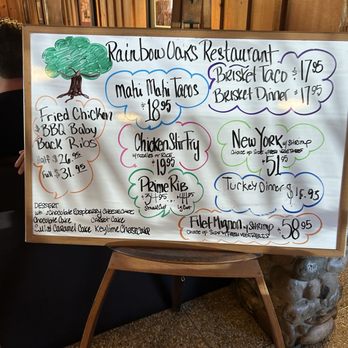 Rainbow Oaks Restaurant
Brisket Taco $17.95
Brisket Dinner $17.95
Mahi Mahi Tacos
$18.95
Fried Chicken
& BBQ Baby
Back Ribs
Half $26.95
Full $31.95
Chicken Stir Fry
w/noodles or Rice
$19.95
New York w/ Shrimp
$51.95
Prime Rib
$34.95
Turkey Dinner $15.95
Filet Mignon w/ Shrimp
$58.95
DESSERT
Chocolate Raspberry Cheesecake
Chocolate Cake Carrot Cake
Caramel Cake Keylime Cheesecake